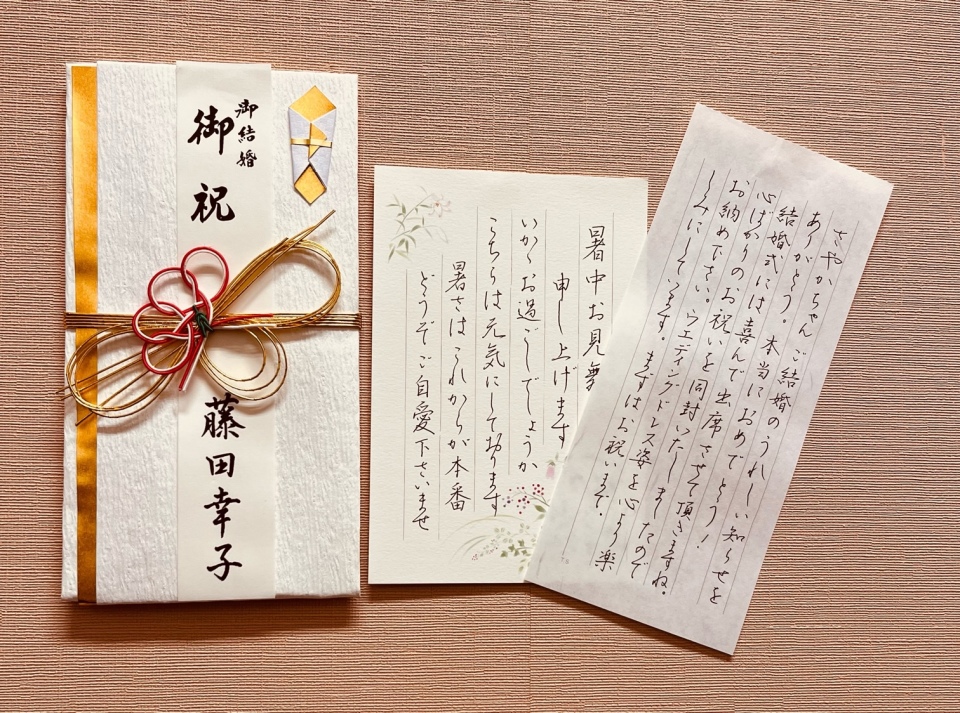 御結婚
御祝
藤田幸子
暑中お見舞
申し上げます
いかがお過ごしでしょうか
こちらは元気にしております
暑さはこれからが本番
どうぞご自愛下さいませ
さやかちゃん ご結婚のうれしい知らせを
ありがとう。本当におめでとう！
結婚式には喜んで出席させて頂きますね。
心ばかりのお祝いを同封いたしましたので
お納め下さい。ウエディングドレス姿を心より楽
しみにしています。まずはお祝いまで。